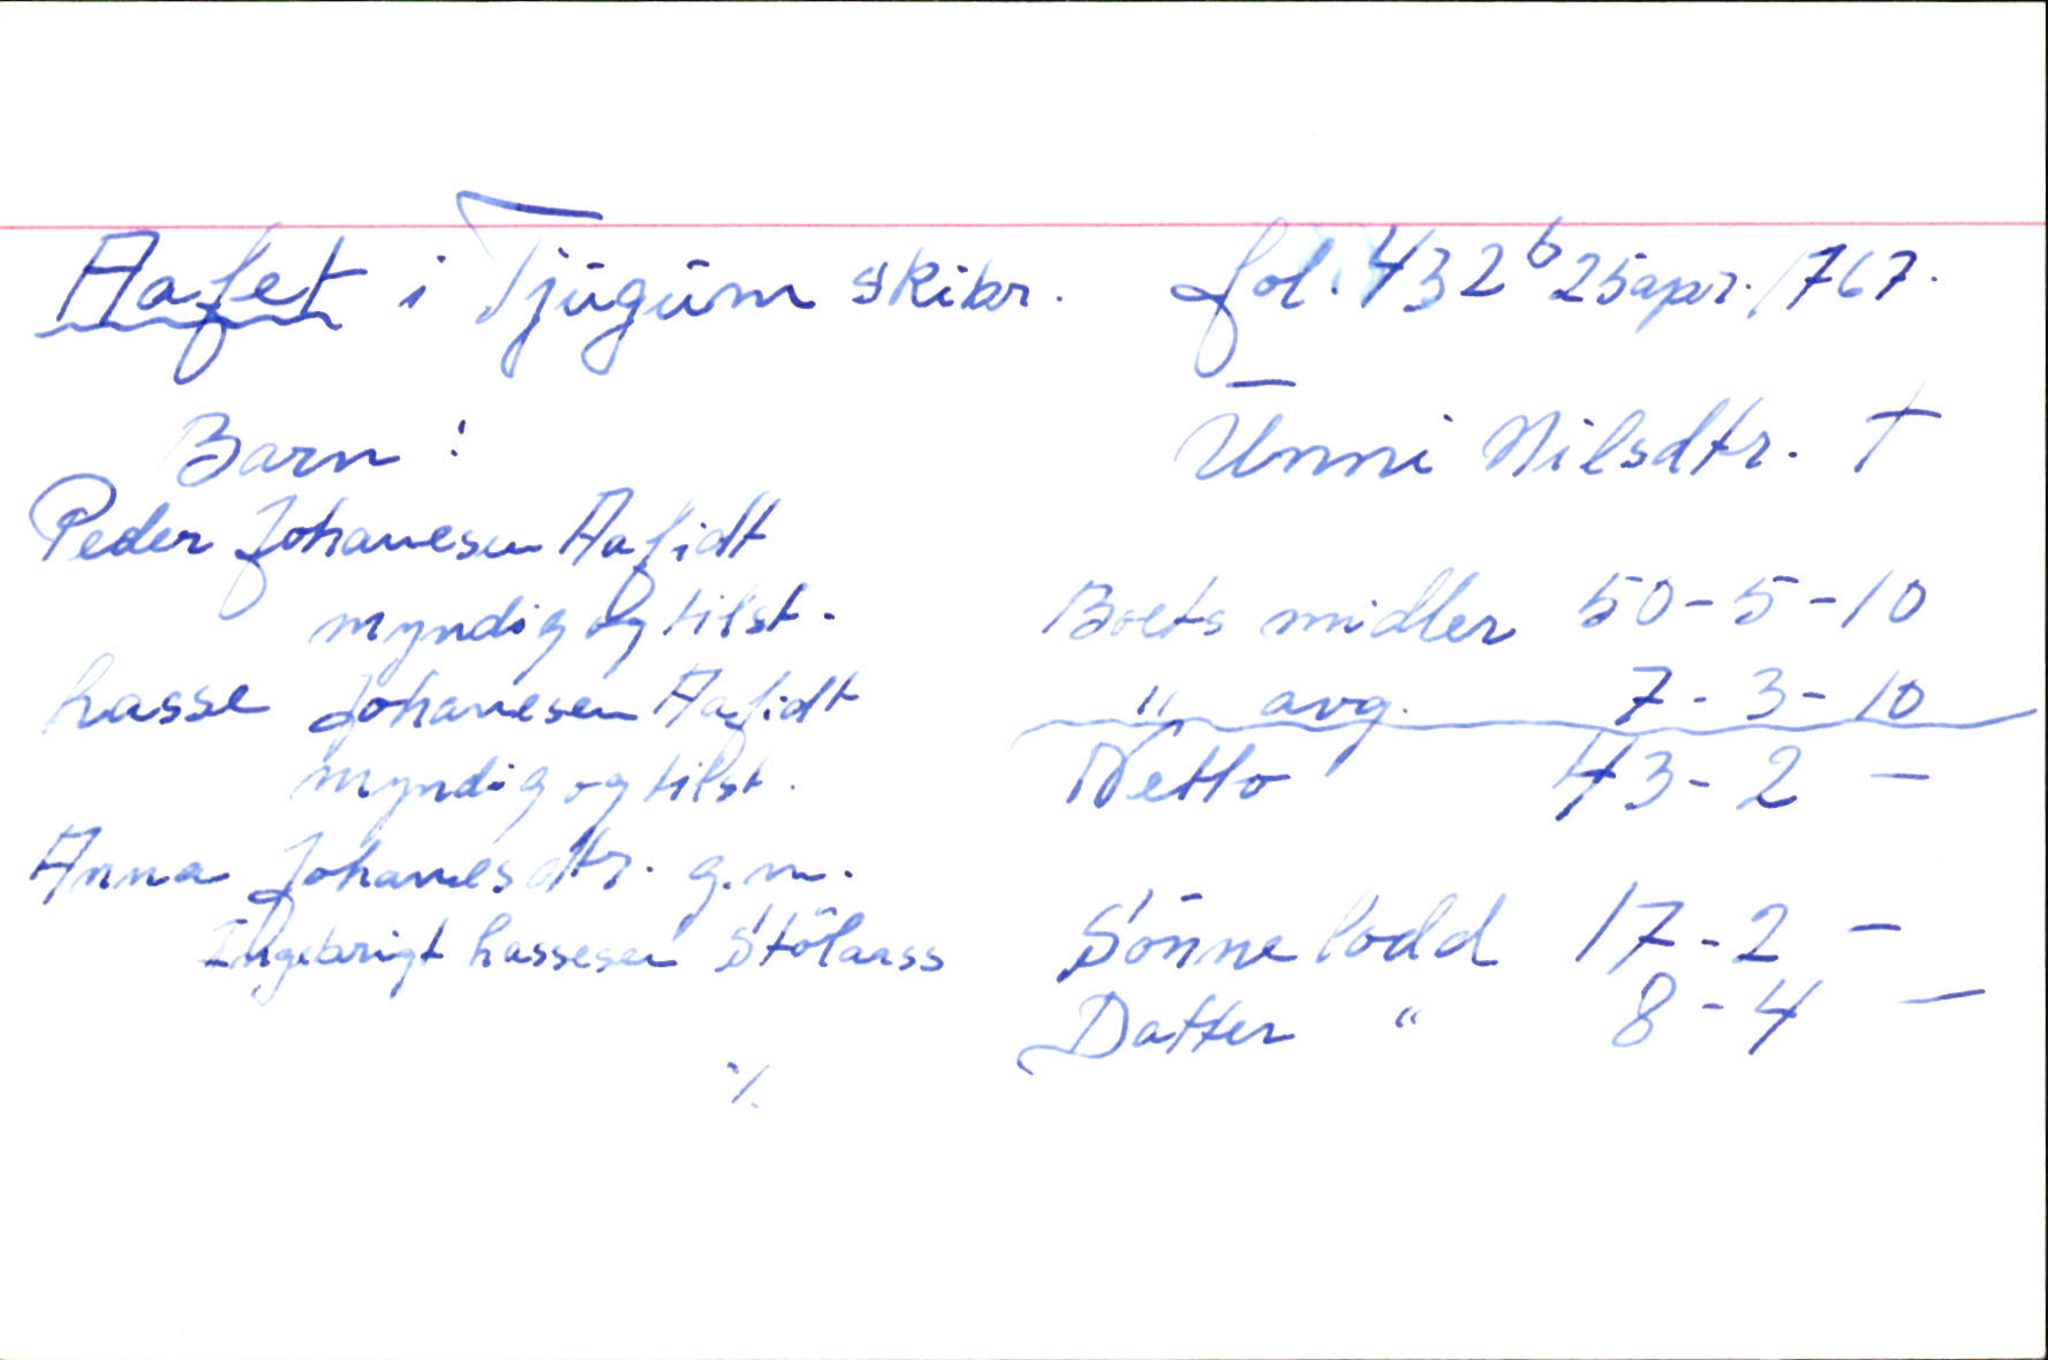 Aafet i Tjugum skibr. fol. 432 b 25 apr. 1767.
Barn :
Unni Nilsdtr. †
Peder Johanesen Aafidt
myndig og tilst.
Lasse Johanesen Aafidt
myndig og tilst.
Anna Johanesdtr. g.m.
Ingebrigt Lassesen Stölaass
·/.
Boets midler 50-5-10
" avg. 7-3-10
Netto 43-2 —
Sönne lodd 17-2 —
Datter " 8-4 —